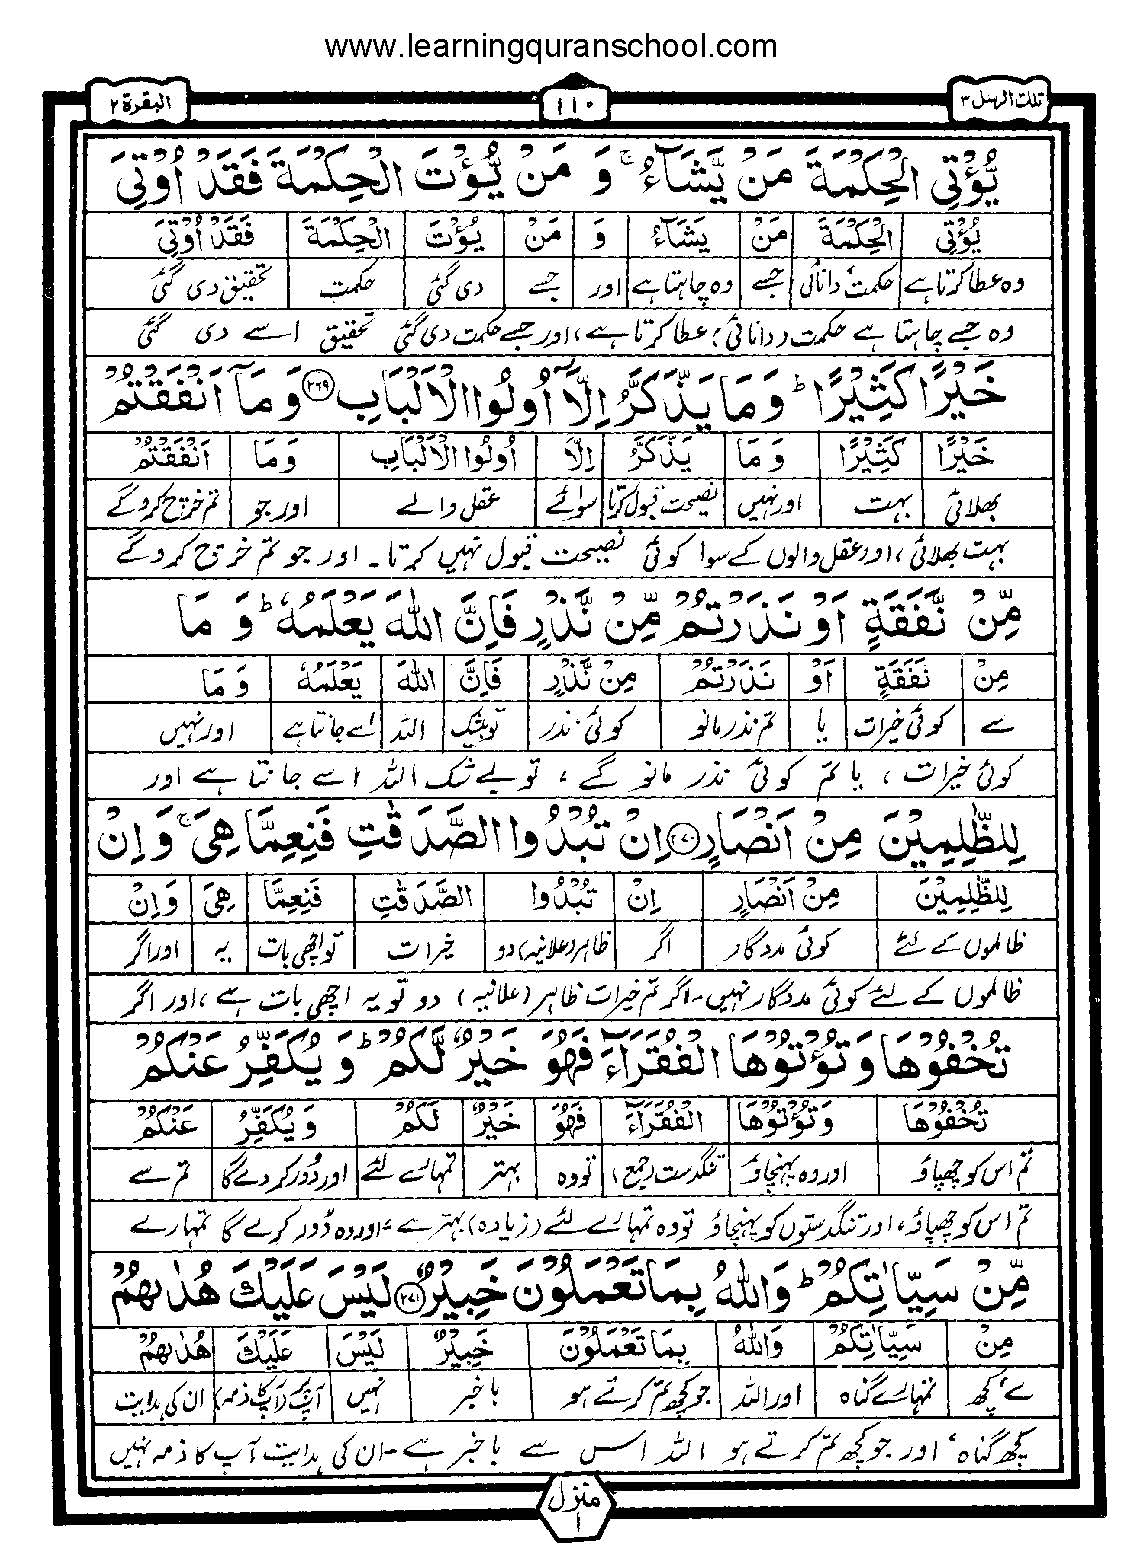 www.learningquranschool.com
تلك الرسل ٣
١١٠
البقرة ٢
يُّؤْتِي الْحِكْمَةَ مَنْ يَّشَآءُ ۚ وَ مَنْ يُّؤْتَ الْحِكْمَةَ فَقَدْ اُوْتِيَ
يُؤْتِي الْحِكْمَةَ مَنْ يَشَآءُ وَ مَنْ يُؤْتَ الْحِكْمَةَ فَقَدْ اُوْتِيَ
وہ عطا کرتا ہے حکمت، دانائی جسے وہ چاہتا ہے اور جسے دی گئی حکمت تحقیق دی گئی
وہ جسے چاہتا ہے حکمت (دانائی) عطا کرتا ہے، اور جسے حکمت دی گئی تحقیق اسے دی گئی
خَيْرًا كَثِيْرًا ؕ وَ مَا يَذَّكَّرُ اِلَّاۤ اُولُوا الْاَلْبَابِ ۲۶۹ وَ مَاۤ اَنْفَقْتُمْ
خَيْرًا كَثِيْرًا وَ مَا يَذَّكَّرُ اِلَّا اُولُوا الْاَلْبَابِ وَ مَا اَنْفَقْتُمْ
بھلائی بہت اور نہیں نصیحت قبول کرتا سوائے عقل والے اور جو تم خرچ کرو گے
بہت بھلائی، اور عقل والوں کے سوا کوئی نصیحت قبول نہیں کرتا۔ اور جو تم خرچ کرو گے
مِّنْ نَّفَقَةٍ اَوْ نَذَرْتُمْ مِّنْ نَّذْرٍ فَاِنَّ اللّٰهَ يَعْلَمُهٗ ؕ وَ مَا
مِنْ نَفَقَةٍ اَوْ نَذَرْتُمْ مِنْ نَّذْرٍ فَاِنَّ اللّٰهَ يَعْلَمُهٗ وَ مَا
سے کوئی خیرات یا تم نذر مانو کوئی نذر تو بیشک اللہ اسے جانتا ہے اور نہیں
کوئی خیرات، یا تم کوئی نذر مانو گے، تو بے شک اللہ اسے جانتا ہے اور
لِلظّٰلِمِيْنَ مِنْ اَنْصَارٍ ۲۷۰ اِنْ تُبْدُوا الصَّدَقٰتِ فَنِعِمَّا هِيَ ۚ وَ اِنْ
لِلظّٰلِمِيْنَ مِنْ اَنْصَارٍ اِنْ تُبْدُوا الصَّدَقٰتِ فَنِعِمَّا هِيَ وَ اِنْ
ظالموں کے لئے کوئی مددگار اگر ظاہر (علانیہ) دو خیرات تو اچھی بات یہ اور اگر
ظالموں کے لئے کوئی مددگار نہیں۔ اگر تم خیرات ظاہر (علانیہ) دو تو یہ اچھی بات ہے، اور اگر
تُخْفُوْهَا وَ تُؤْتُوْهَا الْفُقَرَآءَ فَهُوَ خَيْرٌ لَّكُمْ ؕ وَ يُكَفِّرُ عَنْكُمْ
تُخْفُوْهَا وَ تُؤْتُوْهَا الْفُقَرَآءَ فَهُوَ خَيْرٌ لَكُمْ وَ يُكَفِّرُ عَنْكُمْ
تم اس کو چھپاؤ اور وہ پہنچاؤ تنگدست (جمع) تو وہ بہتر تمہارے لئے اور دُور کر دے گا تم سے
تم اس کو چھپاؤ، اور تنگدستوں کو پہنچاؤ تو وہ تمہارے لئے (زیادہ) بہتر ہے، اور وہ دُور کرے گا تمہارے
مِّنْ سَيِّاٰتِكُمْ ؕ وَاللّٰهُ بِمَا تَعْمَلُوْنَ خَبِيْرٌ ۲۷۱ لَيْسَ عَلَيْكَ هُدٰىهُمْ
مِنْ سَيِّاٰتِكُمْ وَاللّٰهُ بِمَا تَعْمَلُوْنَ خَبِيْرٌ لَيْسَ عَلَيْكَ هُدٰىهُمْ
سے، کچھ تمہارے گناہ اور اللہ جو کچھ تم کرتے ہو باخبر نہیں آپ پر (آپ کا ذمہ) ان کی ہدایت
کچھ گناہ، اور جو کچھ تم کرتے ہو اللہ اس سے باخبر ہے۔ ان کی ہدایت آپ کا ذمہ نہیں
منزل ١